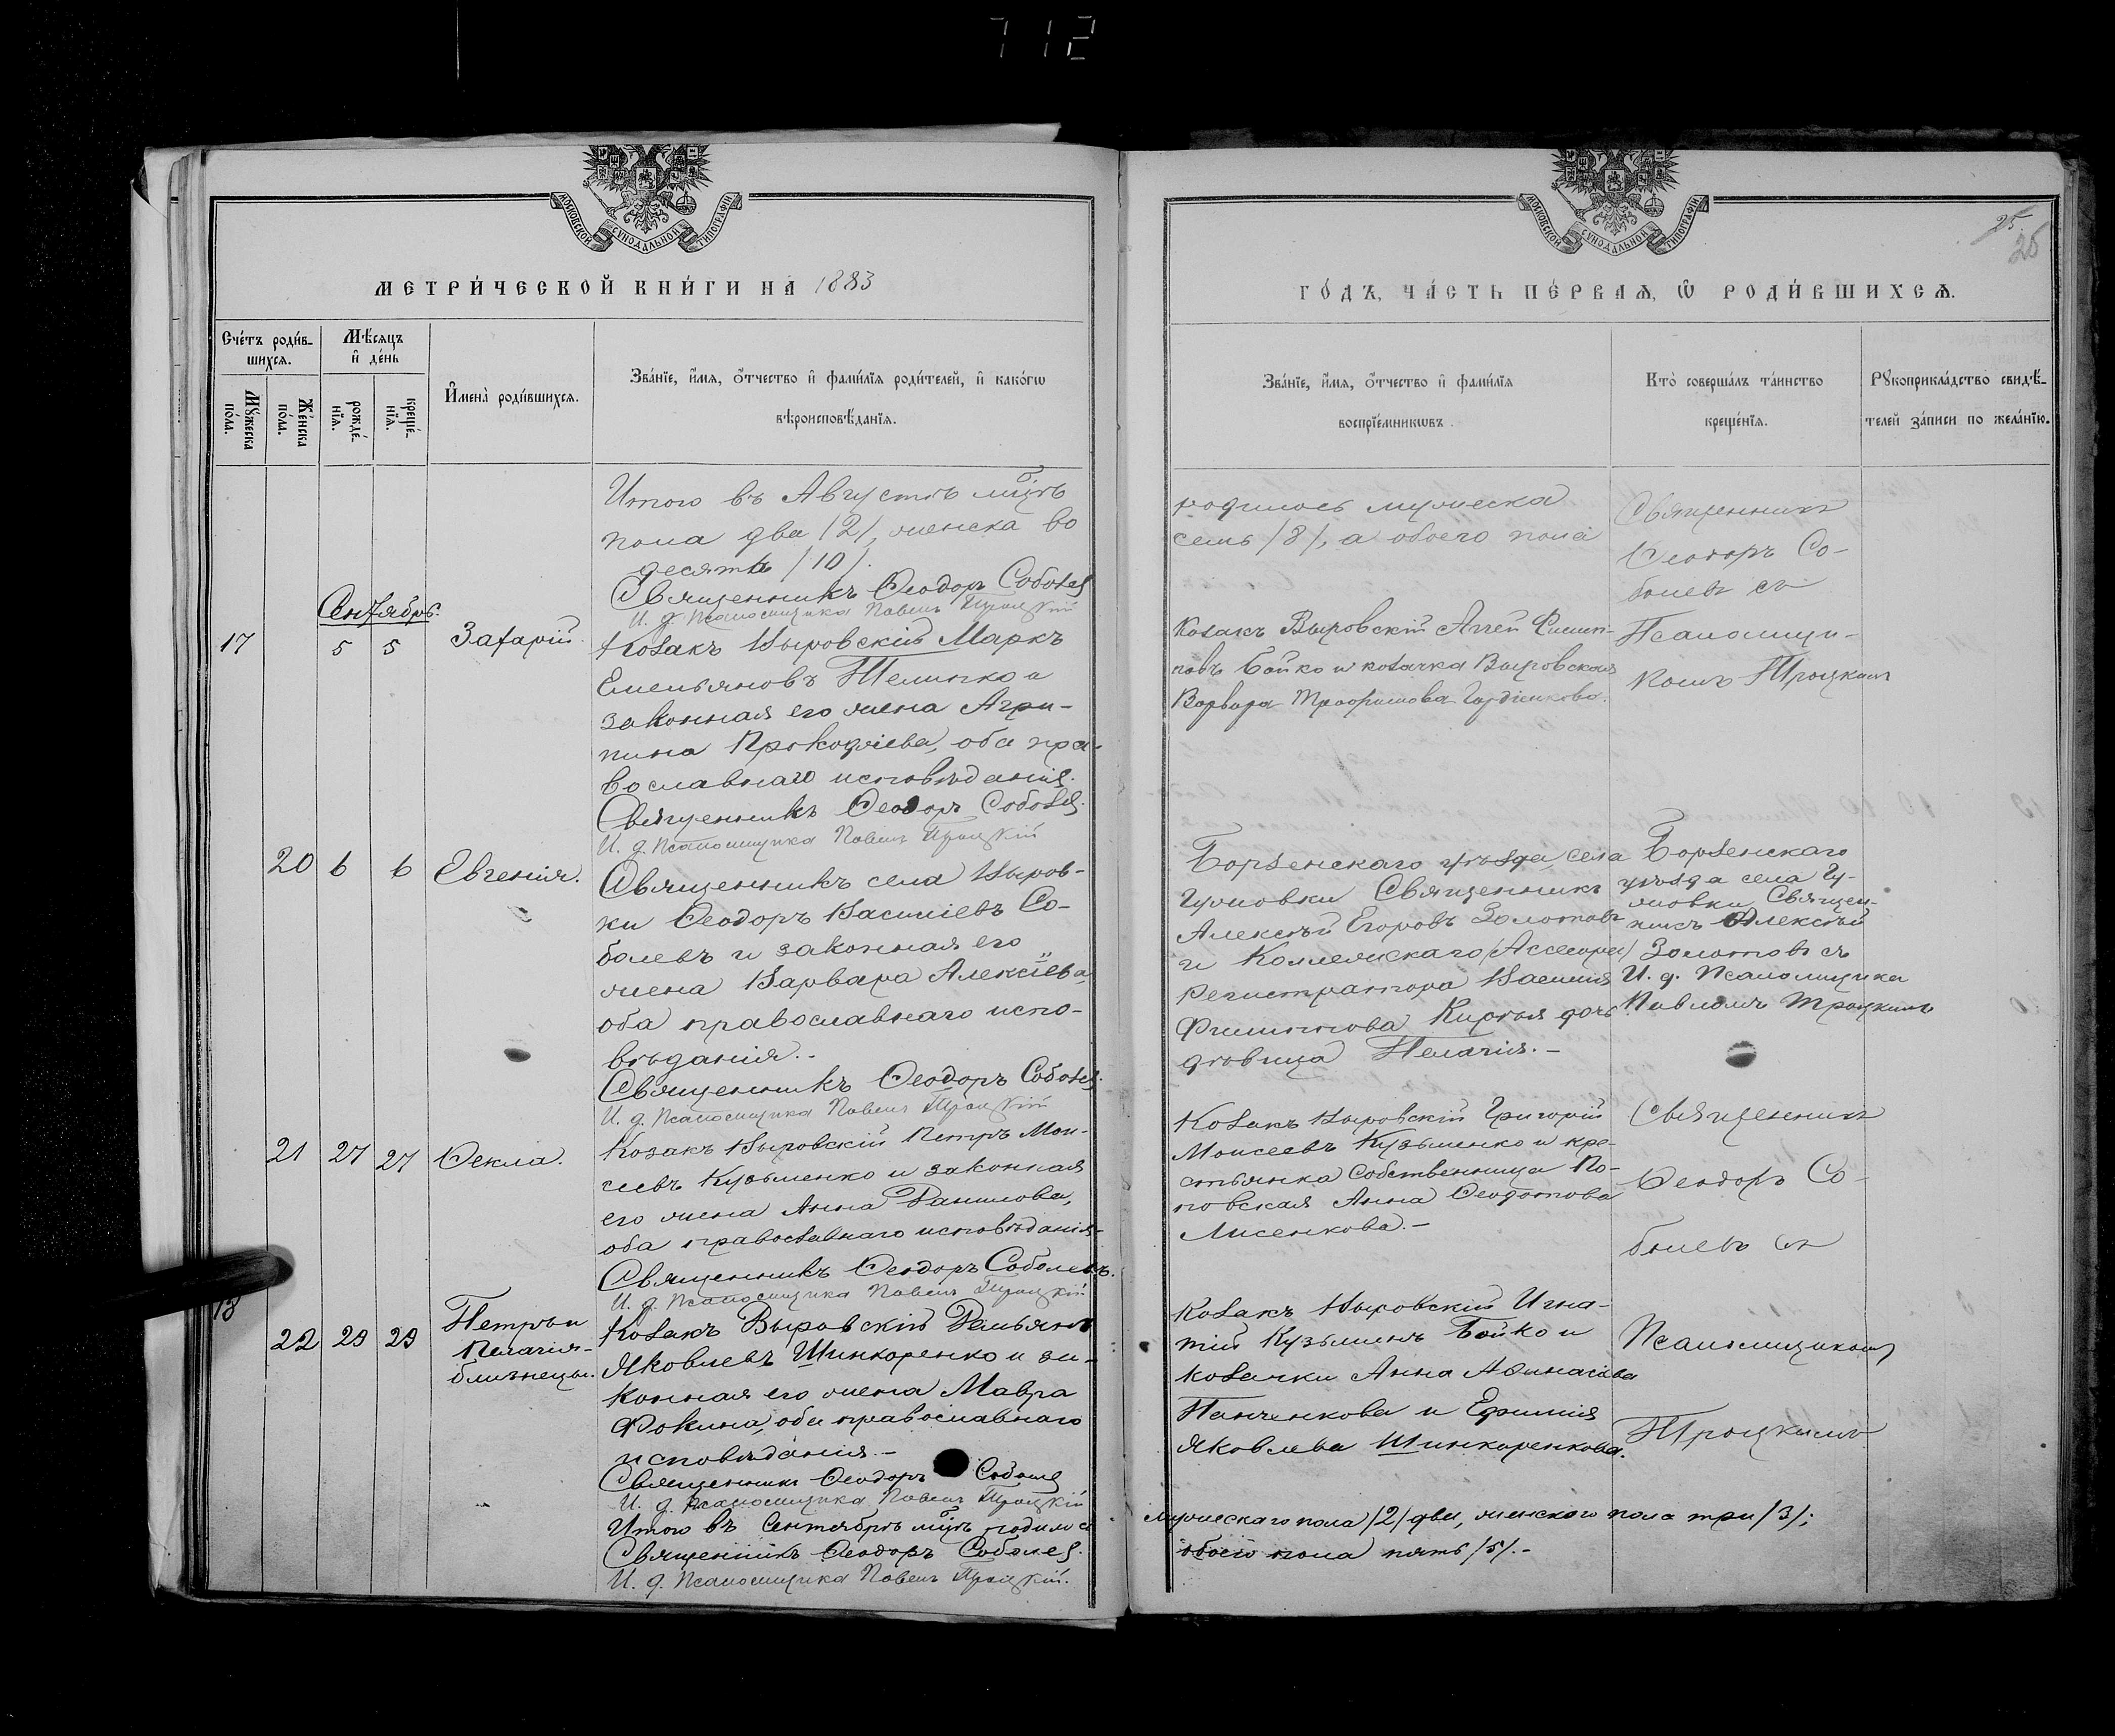 712
МОСКОВСКОЙ СѴНОДАЛЬНОЙ ТИПОГРАФІИ
МЕТРИ́ЧЕСКОЙ КНИ́ГИ НА 1883
Сче́тъ роди́в-
шихся.
Мѣ́сяцъ
и҆ де́нь
Мꙋ́жеска
по́ла.
Же́нска
по́ла.
рожде́-
нїѧ.
креще́-
нїѧ.
И҆мена̀ роди́вшихся.
Зва́нїе, и҆́мѧ, ѻ҆́тчество и҆ фами́лїѧ роди́телей, и҆ како́гѡ
вѣроисповѣ́данїѧ.
Итого въ Августѣ мц̃ѣ
пола два /2/, женска во
десять /10/.
Священникъ Ѳеодоръ Соболев
И. д. Псаломщика Павелъ Троцкій
Сентябрь.
17 5 5 Захарій.
Козакъ Выровскій Маркъ
Емельяновъ Телипко и
законная его жена Агри-
пина Прокофіева, оба пра-
вославнаго исповѣданія.
Священникъ Ѳеодоръ Соболев.
И. д. Псаломщика Павелъ Троцкій
20 6 6 Евгенія.
Священникъ села Выров-
ки Ѳеодоръ Василіевъ Со-
болевъ и законная его
жена Варвара Алексіева,
оба православнаго испо-
вѣданія.-
Священникъ Ѳеодоръ Соболев.
И. д. Псаломщика Павелъ Троцкій
21 27 27 Ѳекла.
Козакъ Выровскій Петръ Мои-
сеевъ Кузьменко и законная
его жена Анна Данилова,
оба православнаго исповѣданія-
Священникъ Ѳеодоръ Соболевъ.
И. д. Псаломщика Павелъ Троцкій
18
22 29 29 Петръ и
Пелагія-
близнецы.
Козакъ Выровскій Демьянъ
Яковлевъ Шинкаренко и за-
конная его жена Мавра
Фокина, оба православнаго
исповѣданія.-
Священникъ Ѳеодоръ Соболев
И. д. Псаломщика Павелъ Троцкій
Итого въ Сентябрѣ мц̃ѣ родилось
Священникъ Ѳеодоръ Соболев.
И. д. Псаломщика Павелъ Троцкій.
МОСКОВСКОЙ СѴНОДАЛЬНОЙ ТИПОГРАФІИ
25.
25
ГО́ДЪ, ЧА́СТЬ ПЕ́РВАѦ, Ѽ РОДИ́ВШИХСѦ.
Зва́нїе, и҆́мѧ, ѻ҆́тчество и҆ фами́лїѧ
воспрїе́мникѡвъ.
Кто̀ соверша́лъ та́инство
креще́нїѧ.
Рꙋкоприкла́дство свидѣ́-
телей за́писи по жела́нїю.
родилось мужеска
семь /8/, а обоего пола
Козакъ Выровскій Аггей Филип-
повъ Бойко и козачка Выровская
Варвара Трофимова Гордіенкова.
Священникъ
Ѳеодоръ Со-
болевъ съ
Псаломщи-
комъ Троцкимъ
Борзенскаго уѣзда, села
Гужовки Священникъ
Алексѣй Егоровъ Золотовъ
и Коллежскаго /Ассесора/
Регистратора Василія
Филиппова Кирѣя дочь
дѣвица Пелагія.-
Борзенскаго
уѣзда села Гу-
жовки Священ-
никъ Алексѣй
Золотовъ съ
И. д. Псаломщика
Павломъ Троцкимъ
Козакъ Выровскій Григорій
Моисеевъ Кузьменко и кре-
стьянка собственница По-
повская Анна Ѳеодотова
Лисенкова.-
Священникъ
Ѳеодоръ Со-
болевъ съ
Козакъ Выровскій Игна-
тій Кузьминъ Бойко и
козачки Анна Афанасіева
Панченкова и Ефимія
Яковлева Шинкаренкова.
Псаломщикомъ
Троцкимъ
мужескаго пола /2/ два, женского пола три /3/;
обоего пола пять /5/.-